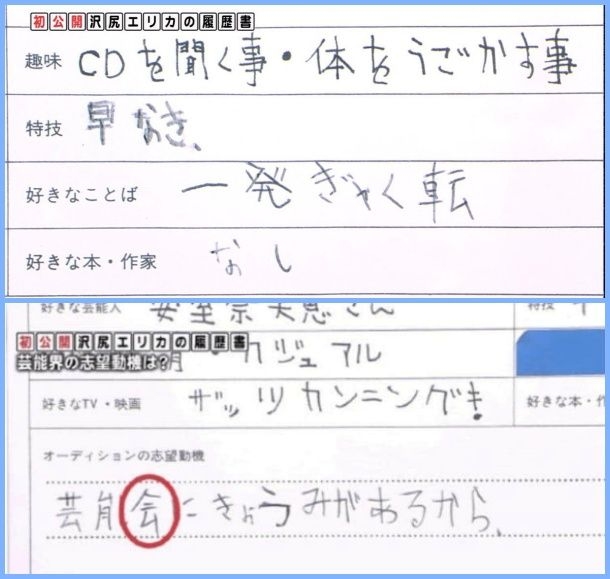 初公開沢尻エリカの履歴書
趣味 CDを聞く事・体をうごかす事
特技 早なき、
好きなことば 一発ぎゃく転
好きな本・作家 なし
好きな芸能人 安室奈美恵さん 特技
初公開沢尻エリカの履歴書
芸能界の志望動機は?
・カジュアル
好きなTV・映画 ザッツカンニングき! 好きな本・作
オーディションの志望動機
芸能会にきょうみがあるから、